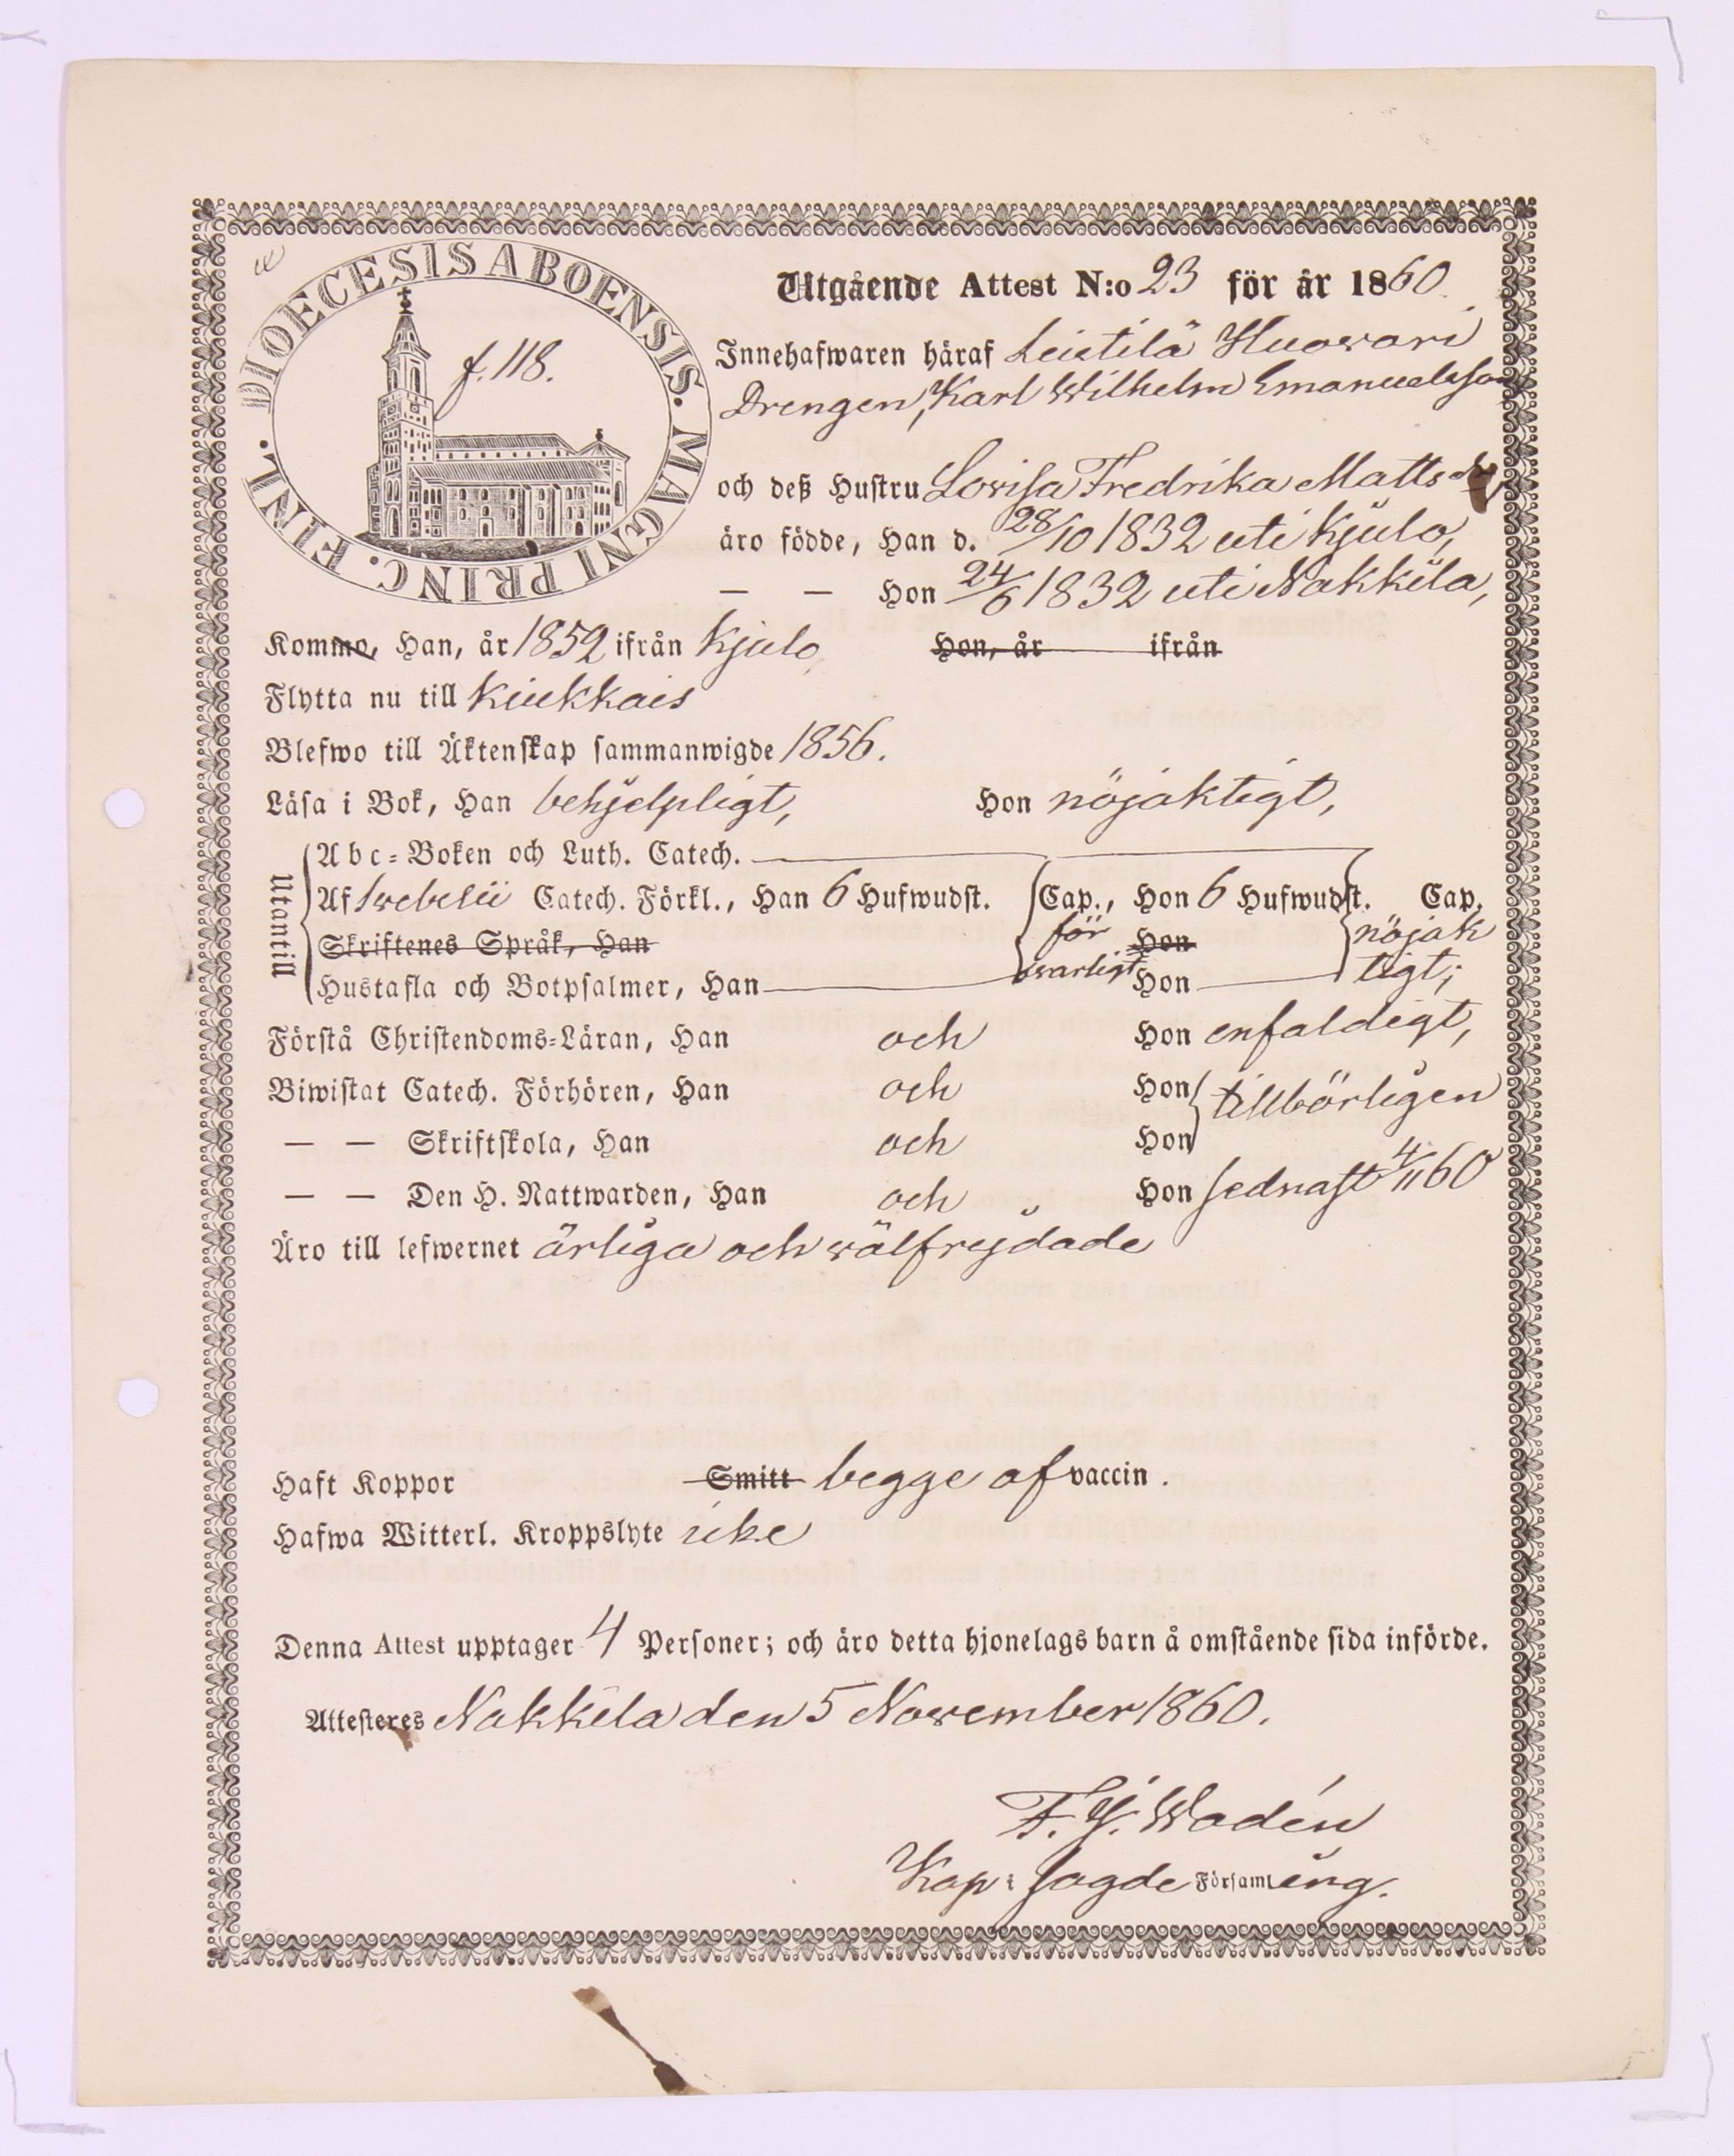 DIOECESIS ABOENSIS. MAGNI PRINC. FINL.
f. 118.
Utgående Attest N:o 23 för år 1860
Innehafwaren häraf Leistilä Huovari
Drengen, Karl Wilhelm Emanuelsson
och deß Hustru Lovisa Fredrika Mattsdr
äro födde, Han d. 28/10 1832 uti Kjulo,
— — Hon 24/6 1832 uti Nakkila,
Kommo, Han, år 1852 ifrån Kjulo, Hon, år ifrån
Flytta nu till Kiukkais
Blefwo till Äktenskap sammanwigde 1856.
Läsa i Bok, Han behjelpligt, Hon nöjaktigt,
Utantill
Abc-Boken och Luth. Catech.
Af Svebelii Catech. Förkl., Han 6 Hufwudst. Cap., Hon 6 Hufwudst. Cap.
Skriftenes Språk, Han för Hon nöjak
Hustafla och Botpsalmer, Han svarligt Hon tigt;
Förstå Christendoms-Läran, Han och Hon enfaldigt,
Biwistat Catech. Förhören, Han och Hon tillbörligen
— — Skriftskola, Han och Hon
— — Den H. Nattwarden, Han och Hon sednast 4/11 60
Äro till lefwernet ärliga och välfrejdade
Haft Koppor Smitt begge af vaccin.
Hafwa Witterl. Kroppslyte icke
Denna Attest upptager 4 Personer; och äro detta hjonelags barn å omstående sida införde.
Attesteres Nakkila den 5 November 1860.
F. J. Wadén
Kap: Sagde Församling.